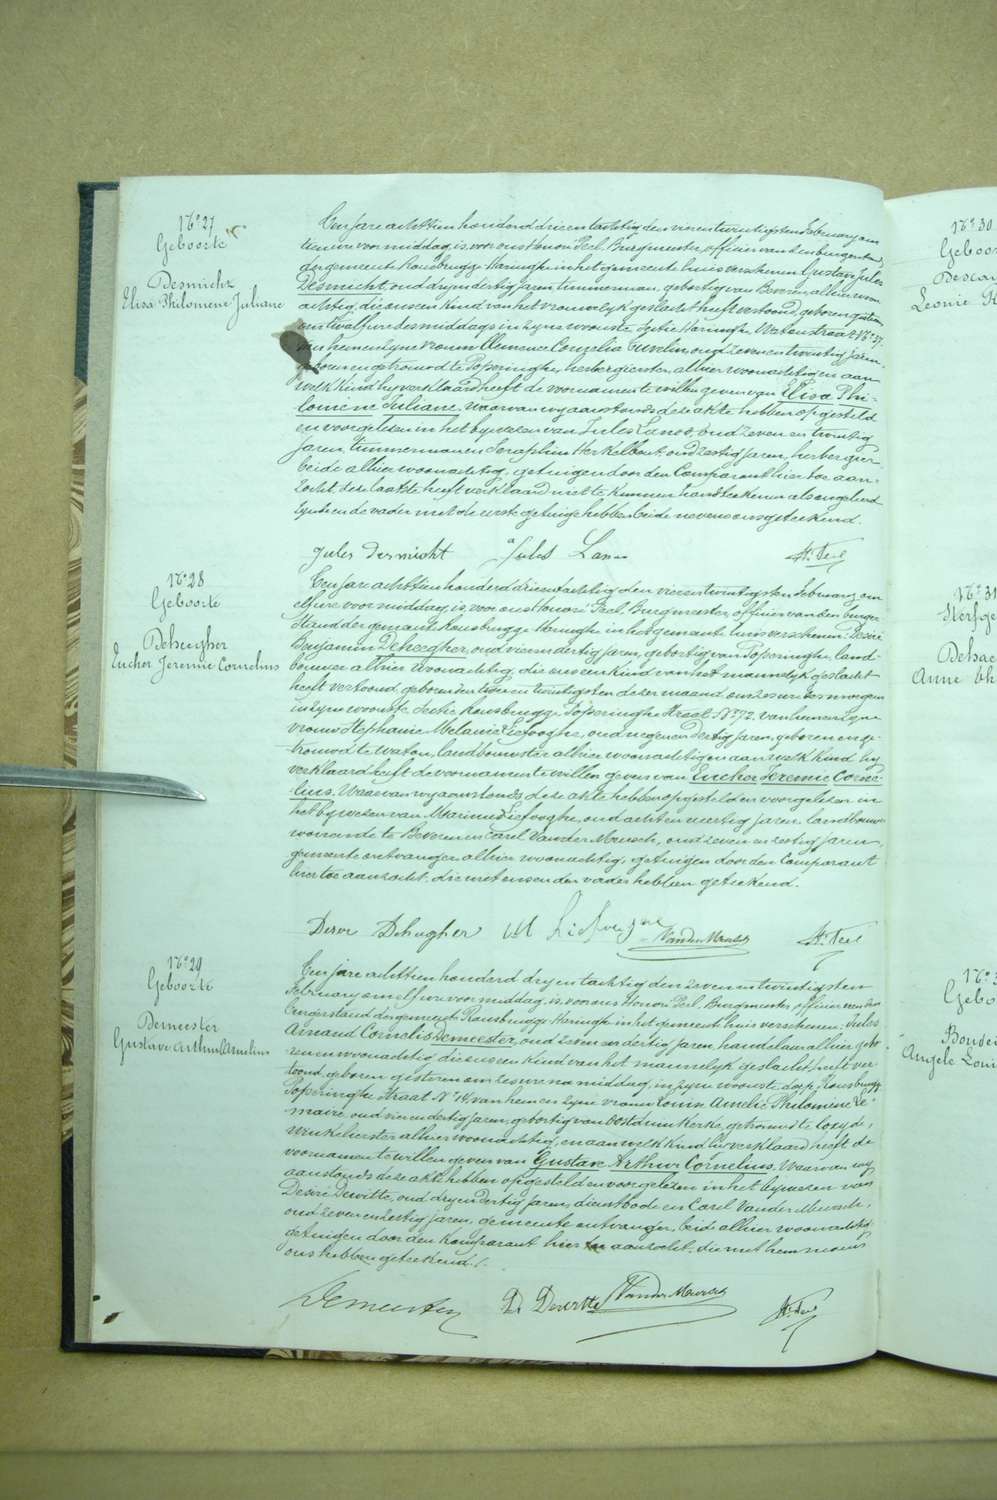 N° 27
Geboorte
Desmicht
Elisa Philomene Juliane
Ten jare achttien honderd drie en tachtig den vier en twintigsten february om
tien ure voor middag, is, voor ons Honoré Peel, Burgmeester, officier van den burgerstand
der gemeente Rousbrugge Haringhe in het gemeente huis verschenen Gustaf Jules
Desmicht, oud dry en dertig jaren, timmerman, gebortig van Beveren alhier woon-
achtig, die ons een kind van het vrouwelyk geslacht heeft vertoond, geboren gisteren
om twalf ure des middags in zyne wooste, sectie Haringhe Watoustraat N° 37.
van hem en zyne vrouw Clemence Cornelia Cuvelier, oud zeven en twintig jaren,
geboren en getrouwd te Poperinghe, herbergierster, alhier woonachtig en aan
welk kind hy verklaard heeft de voornamen te willen geven van Elisa Phi-
lomene Juliane. Waarvan wy aanstonds deze akte hebben opgesteld
en voorgelezen in het bywezen van Jules Lanoo, oud zeven en twintig
jaren, timmerman en Seraphin Herkelbout, oud zestig jaren, herbergier,
beide alhier woonachtig, getuigen door den Comparant hier toe aan-
zocht, deze laatste heeft verklaard niet te kunnen handteekenen als ongeleerd
zynde en de vader met de eerste getuige hebben beide nevens ons geteekend.
Jules Desmicht Jules Lanoo H. Peel
N° 28
Geboorte
Deheegher
Eucher Jeremie Cornelius
Ten jare achttien honderd drie en tachtig den vier en twintigsten february om
elf ure voor middag, is, voor ons Honoré Peel, Burgmeester, officier van den burger-
stand der gemeente Rousbrugge Haringhe in het gemeente huis verschenen: Desiré
Benjamin Deheegher, oud vier en dertig jaren, gebortig van Poperinghe, land-
bouwer alhier woonachtig, die ons een kind van het mannelyk geslacht
heeft vertoond, geboren den twee en twintigsten dezer maand, om zes ure des morgens
in zyne wooste sectie Rousbrugge Poperinghe straat N° 72. van hem en zyne
vrouw Stephanie Melanie Liefooghe, oud negen en dertig jaren, geboren en ge-
trouwd te Watou, landbouwster alhier woonachtig en aan welk kind hy
verklaard heeft de voornamen te willen geven van Eucher Jeremie Corne-
lius. Waarvan wy aanstonds deze akte hebben opgesteld en voorgelezen in
het bywezen van Marinus Liefooghe, oud acht en veertig jaren, landbouwer
woonende te Beveren en Carel Vander Meersch, oud zeven en zestig jaren,
gemeente ontvanger alhier woonachtig, getuigen door den Comparant
hier toe aanzocht, die met ons en den vader hebben geteekend.
Desire Dehegher M Liefooghe VanderMeersch H. Peel
N° 29
Geboorte
Demeester
Gustave Arthur Cornelius
Ten jare achttien honderd dry en tachtig den zeven en twintigsten
February om elf ure voor middag, is, voor ons Honoré Peel, Burgmeester, officier van den
burgerstand der gemeente Rousbrugge Haringhe in het gemeente huis verschenen: Jules
Amand Cornelis Demeester, oud zeven en dertig jaren, handelaar alhier gebo-
ren en woonachtig, die ons een kind van het mannelyk geslacht, heeft ver-
toond, geboren gisteren om zes ure na middag, in zyne wooste, dorp Rousbrugge
Poperinghe straat N° 14, van hem en zyne vrouw Louise Amelie Philomene Le-
maire, oud vier en dertig jaren, gebortig van Oostduinkerke, getrouwd te Coxyde,
winkelierster alhier woonachtig, en aan welk kind hy verklaard heeft de
voornamen te willen geven van Gustave Arthur Cornelius. Waarvan wy
aanstonds deze akte hebben opgesteld en voorgelezen in het bywezen van
Desiré Dewitte, oud dry en dertig jaren, dienstbode en Carel Vander Meersch,
oud zeven en zestig jaren, gemeente ontvanger, beide alhier woonachtig
getuigen door den komparant hier toe aanzocht, die met hem nevens
ons hebben geteekend.
Demeester D. Dewitte VanderMeersch H. Peel
N° 30
N° 31
Sterfge
Anne
Gebo
Angele Loui